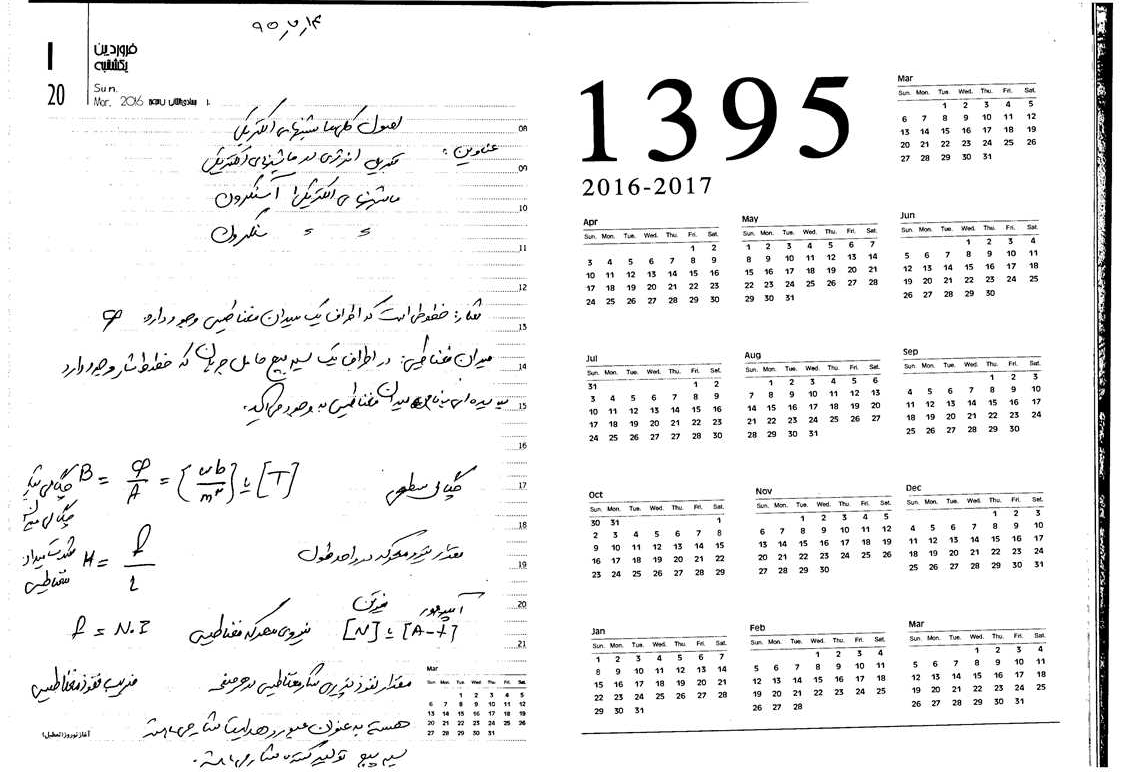 ۹۵,۷,۱۴
1
فروردین
یکشنبه
20
Sun.
Mar. 2016
اصول کلی ماشینهای الکتریکی
08
عناوین:
تبدیل انرژی در ماشینهای الکتریکی
09
ماشینهای الکتریکی آسنکرون
10
〃 〃 سنکرون
11
12
شار: خطوطی است که اطراف یک میدان مغناطیسی وجود دارد φ
13
میدان مغناطیسی: در اطراف یک سیم پیچ حامل جریان که خطوط شار وجود دارد
14
پدیده ای به نام میدان مغناطیسی به وجود می آید.
15
16
چگالی شار
B = φ/A = {wb/m²} یا [T]
چگالی سطحی
17
چگالی میدان
18
شدت میدان مغناطیسی
H = f/l
مقدار نیرو محرکه در واحد طول
19
نیوتن آمپردور
20
f = N.I
نیروی محرکه مغناطیسی [N] یا [A-t]
21
ضریب نفوذ مغناطیسی
مقدار نفوذ پذیری شار مغناطیسی در هر صفحه
هسته به عنوان عبور و هدایت شار می باشد
سیم پیچ تولید کننده شار می باشد.
آغاز نوروز (تعطیل)
Mar
Sun. Mon. Tue. Wed. Thu. Fri. Sat.
1 2 3 4 5
6 7 8 9 10 11 12
13 14 15 16 17 18 19
20 21 22 23 24 25 26
27 28 29 30 31
1395
2016-2017
Mar
Sun. Mon. Tue. Wed. Thu. Fri. Sat.
1 2 3 4 5
6 7 8 9 10 11 12
13 14 15 16 17 18 19
20 21 22 23 24 25 26
27 28 29 30 31
Apr
Sun. Mon. Tue. Wed. Thu. Fri. Sat.
1 2
3 4 5 6 7 8 9
10 11 12 13 14 15 16
17 18 19 20 21 22 23
24 25 26 27 28 29 30
May
Sun. Mon. Tue. Wed. Thu. Fri. Sat.
1 2 3 4 5 6 7
8 9 10 11 12 13 14
15 16 17 18 19 20 21
22 23 24 25 26 27 28
29 30 31
Jun
Sun. Mon. Tue. Wed. Thu. Fri. Sat.
1 2 3 4
5 6 7 8 9 10 11
12 13 14 15 16 17 18
19 20 21 22 23 24 25
26 27 28 29 30
Jul
Sun. Mon. Tue. Wed. Thu. Fri. Sat.
31 1 2
3 4 5 6 7 8 9
10 11 12 13 14 15 16
17 18 19 20 21 22 23
24 25 26 27 27 28 30
Aug
Sun. Mon. Tue. Wed. Thu. Fri. Sat.
1 2 3 4 5 6
7 8 9 10 11 12 13
14 15 16 17 18 19 20
21 22 23 24 25 26 27
28 29 30 31
Sep
Sun. Mon. Tue. Wed. Thu. Fri. Sat.
1 2 3
4 5 6 7 8 9 10
11 12 13 14 15 16 17
18 19 20 21 22 23 24
25 26 27 28 29 30
Oct
Sun. Mon. Tue. Wed. Thu. Fri. Sat.
30 31 1
2 3 4 5 6 7 8
9 10 11 12 13 14 15
16 17 18 19 20 21 22
23 24 25 26 27 28 29
Nov
Sun. Mon. Tue. Wed. Thu. Fri. Sat.
1 2 3 4 5
6 7 8 9 10 11 12
13 14 15 16 17 18 19
20 21 22 23 24 25 26
27 28 29 30
Dec
Sun. Mon. Tue. Wed. Thu. Fri. Sat.
1 2 3
4 5 6 7 8 9 10
11 12 13 14 15 16 17
18 19 20 21 22 23 24
25 26 27 28 29 30 31
Jan
Sun. Mon. Tue. Wed. Thu. Fri. Sat.
1 2 3 4 5 6 7
8 9 10 11 12 13 14
15 16 17 18 19 20 21
22 23 24 25 26 27 28
29 30 31
Feb
Sun. Mon. Tue. Wed. Thu. Fri. Sat.
1 2 3 4
5 6 7 8 9 10 11
12 13 14 15 16 17 18
19 20 21 22 23 24 25
26 27 28
Mar
Sun. Mon. Tue. Wed. Thu. Fri. Sat.
1 2 3 4
5 6 7 8 9 10 11
12 13 14 15 16 17 18
19 20 21 22 23 24 25
26 27 28 29 30 31